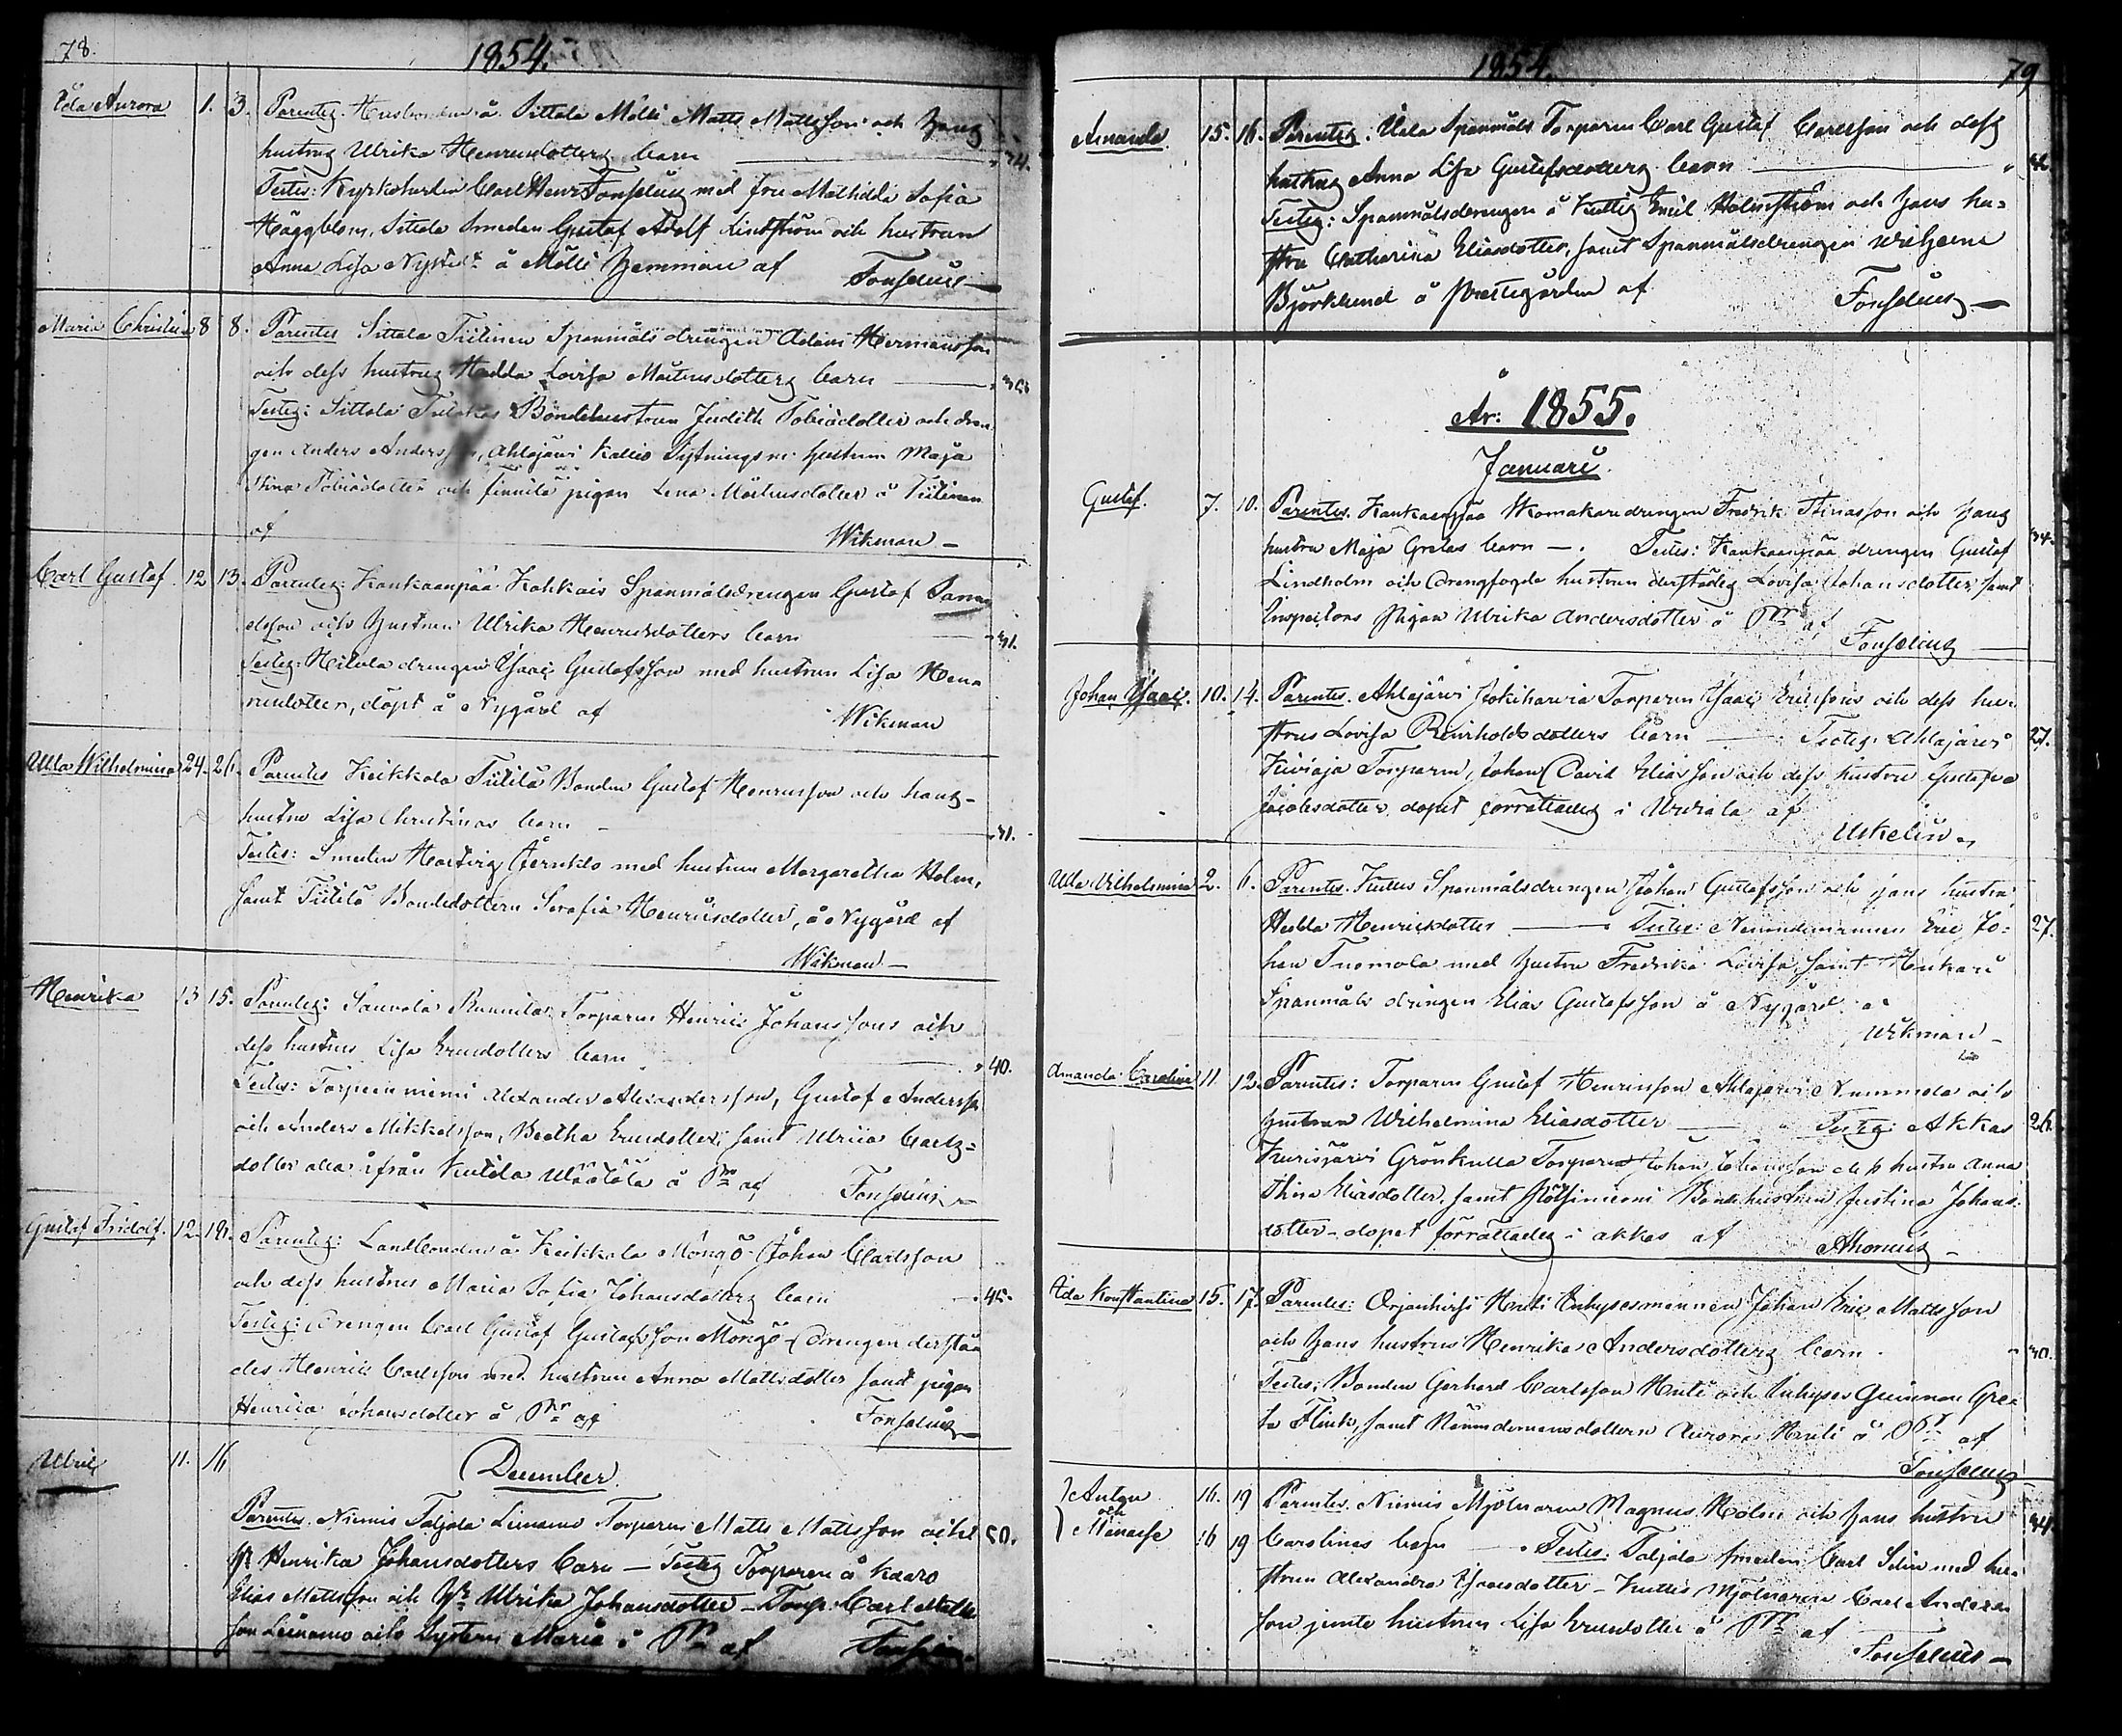 78.
1854.
Ida Aurora 1. 3. Parentes. Husbonden å Sittala Mälli Matts Mattsson och hans
hustrus Ulrika Henricsdotters barn 34.
Testes: Kyrkoherden Carl Henr Fonselius med fru Mathilda Sofia
Häggblom, Sittala Smeden Gustaf Adolf Lindström och hustrun
Anna Lisa Nystedt å Mälli hemman af Fonselius
Maria Christina 8 8. Parentes Sittala Tiitinen Spanmåls drengen Adam Hermansson
och dess hustrus Hedda Lovisa Mårtensdotters barn
Testes: Sittala Bondehustrun Judith Tobiædotter och dren
gen Anders Andersson, Ahlajärvi Kallio hustrun Maja
Stina Tobiædotter och pigan Lena Mårtensdotter å Tiitinen
af Wikman
Carl Gustaf. 12 13. Parentes: Kankaanpää Kokkois Spanmålsdrengen Gustaf Samu
elsson och hustrun Ulrika Henricsdotters barn 31.
Testes: drengen Isaac Gustafsson med hustrun Lisa Hen
ricsdotter, döpt å Nygård af Wikman
Ulla Wilhelmina 24. 26. Parentes Keikkala Tiitilä Bonden Gustaf Henricsson och hans
hustru Lisa Christinas barn 31.
Testes: Smeden Hartvig Jernklo med hustrun Margaretha Holm,
samt Tiitilä Bondedottern Serafia Henricsdotter, å Nygård af
Wikman
Henrika 13 15. Parentes: Sauvala Torparen Henric Johanssons och
dess hustrus Lisa Ericsdotters barn 40.
Testes: Alexander Alexandersson, Gustaf Andersson
och Anders Mikkelsson, Beatha Ericsdotter, samt Ulrica Carls=
dotter alla ifrån af Fonselius
Gustaf Fridolf. 12. 18. Parentes: Landbonden å Keikkala Möngö Johan Carlsson
och dess hustrus Maria Sofia Johansdotters barn 45.
Testes: Drengen Carl Gustaf Gustafsson Möngö - Drengen derstä
des Henric Carlsson med hustrun Anna Mattsdotter samt pigan
Henrica Johansdotter å Pr af Fonselius
Ulric 11. 16
December.
Parentes. Niemis Taljala Torparen Matts Mattsson och 50.
Henrika Johansdotters barn — Testes Torparen å Kaaro
Elias Mattsson och Ulrika Johansdotter — Torp. Carl Matts
son och Systern Maria å Pr af
1854.
79
Amanda. 15. 16. Parentes: Uola Spanmåls Torparen Carl Gustaf Carlsson och dess
hustrus Anna Lisa Gustafsdotters barn
Testes: Spanmålsdrengen å Kuttis Emil Holmström och hans hu=
stru Catharina Eliasdotter, samt Spanmålsdrengen Wilhelm
Björklund å Prestegården af Fonselius
År: 1855.
Januari.
Gustaf. 7. 10. Parentes. Kankaanpää Skomakaredrengen Fredrik och hans
hustru Maja Gretas barn —. Testes: Kankaanpää drengen Gustaf 34.
Lindholm och Drengfogde hustrun derstädes Lovisa Johansdotter, samt
Inspectors pigan Ulrika Andersdotter å Pr af
Fonselius
Johan Isaac. 10. 14. Parentes. Ahlajärvi Torparen Isaac Ericssons och dess hu=
strus Lovisa Reinholdsdotters barn Testes: Ahlajärvi 27.
Kiviaja Torparen, Johan David Eliasson och dess hustru Gustafva
Jacobsdotter, dopet förrättades i Urdiala af
Uskelin
Ulla Wilhelmina 2. 6. Parentes. Kutlus Spanmålsdrengen Johan Gustafsson och hans hustru
Hedda Henricsdotter — Testes: Nämndemannen Eric Jo= 27.
han Tuomola med hustru Fredrika Lovisa, samt
Spanmåls drengen Elias Gustafsson å Nygård. af
Wikman
Amanda Carolina 11. 12. Parentes: Torparen Gustaf Henricsson Ahlajärvi Nummela och
hustrun Wilhelmina Eliasdotter — Testes: Akkas 26.
Kurisjärvi Grönkulla Torparen Johan Johansson dess hustru Anna
Stina Eliasdotter, samt Bondehustrun Justina Johans=
dotter - dopet förrättades i Akkas af Ahonius
Ida Konstantina 15. 17. Parentes: Orjanhirsi Huti Inhysesmannen Johan Eric Mattsson
och hans hustrus Henrika Andersdotters barn. 30.
Testes: Bonden Gerhard Carlsson Huti och Inhyses Quinnan Gre=
ta Flink, samt Nämndemansdottern Aurora Huti å Pr af
Fonselius
Anton 16. 19 Parentes. Niemis Mjölnaren Magnus Holm och hans hustru 34
och
Manasse 16 19 Carolinas barn — Testes: Taljala Smeden Carl Selin med hu=
strun Alexandra Isacsdotter — Kuttis Mjölnaren Carl Anders
son jemte hustrun Lisa Ericsdotter å Pr af
Fonselius